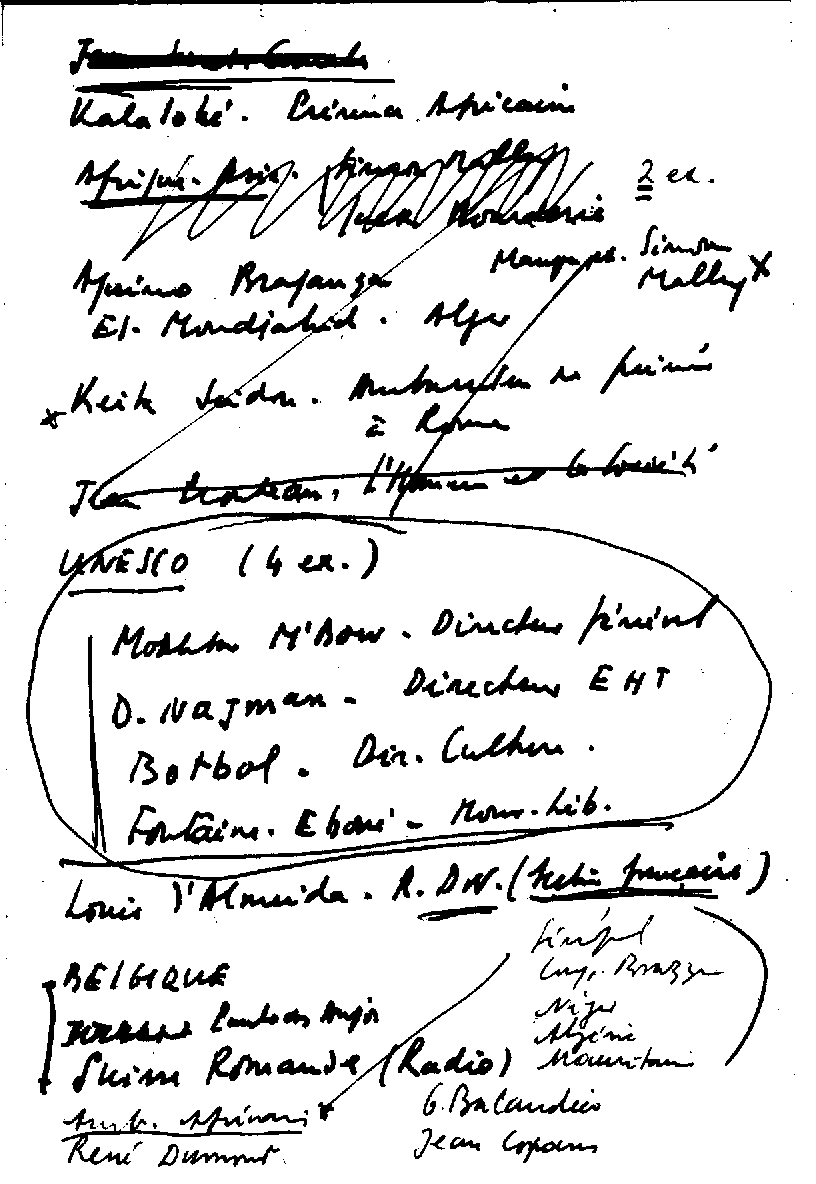 Kalaloké. Cinéma Africain
Afrique-Asie. Simon Malley
2 ex.
Aquino Bragança
Simon
Malley x
El. Moudjahid. Alger
x Keita Seidou. Ambassadeur de
à Rome
Jean L'Homme et la Société
UNESCO (4 ex.)
Mokhtar M'Bow. Directeur général
D. Najman - Directeur EHT
Botbol. Dir. Culture.
Fontaine. Eboni - Mouv. Lib.
Louis d'Almeida. R. DW. (Section française)
Sénégal
BELGIQUE
Congo. Brazza
Niger
Algérie
Suisse Romande (Radio)
Mauritanie
Amb. Africains x
G. Balandier
René Dumont
Jean Copans